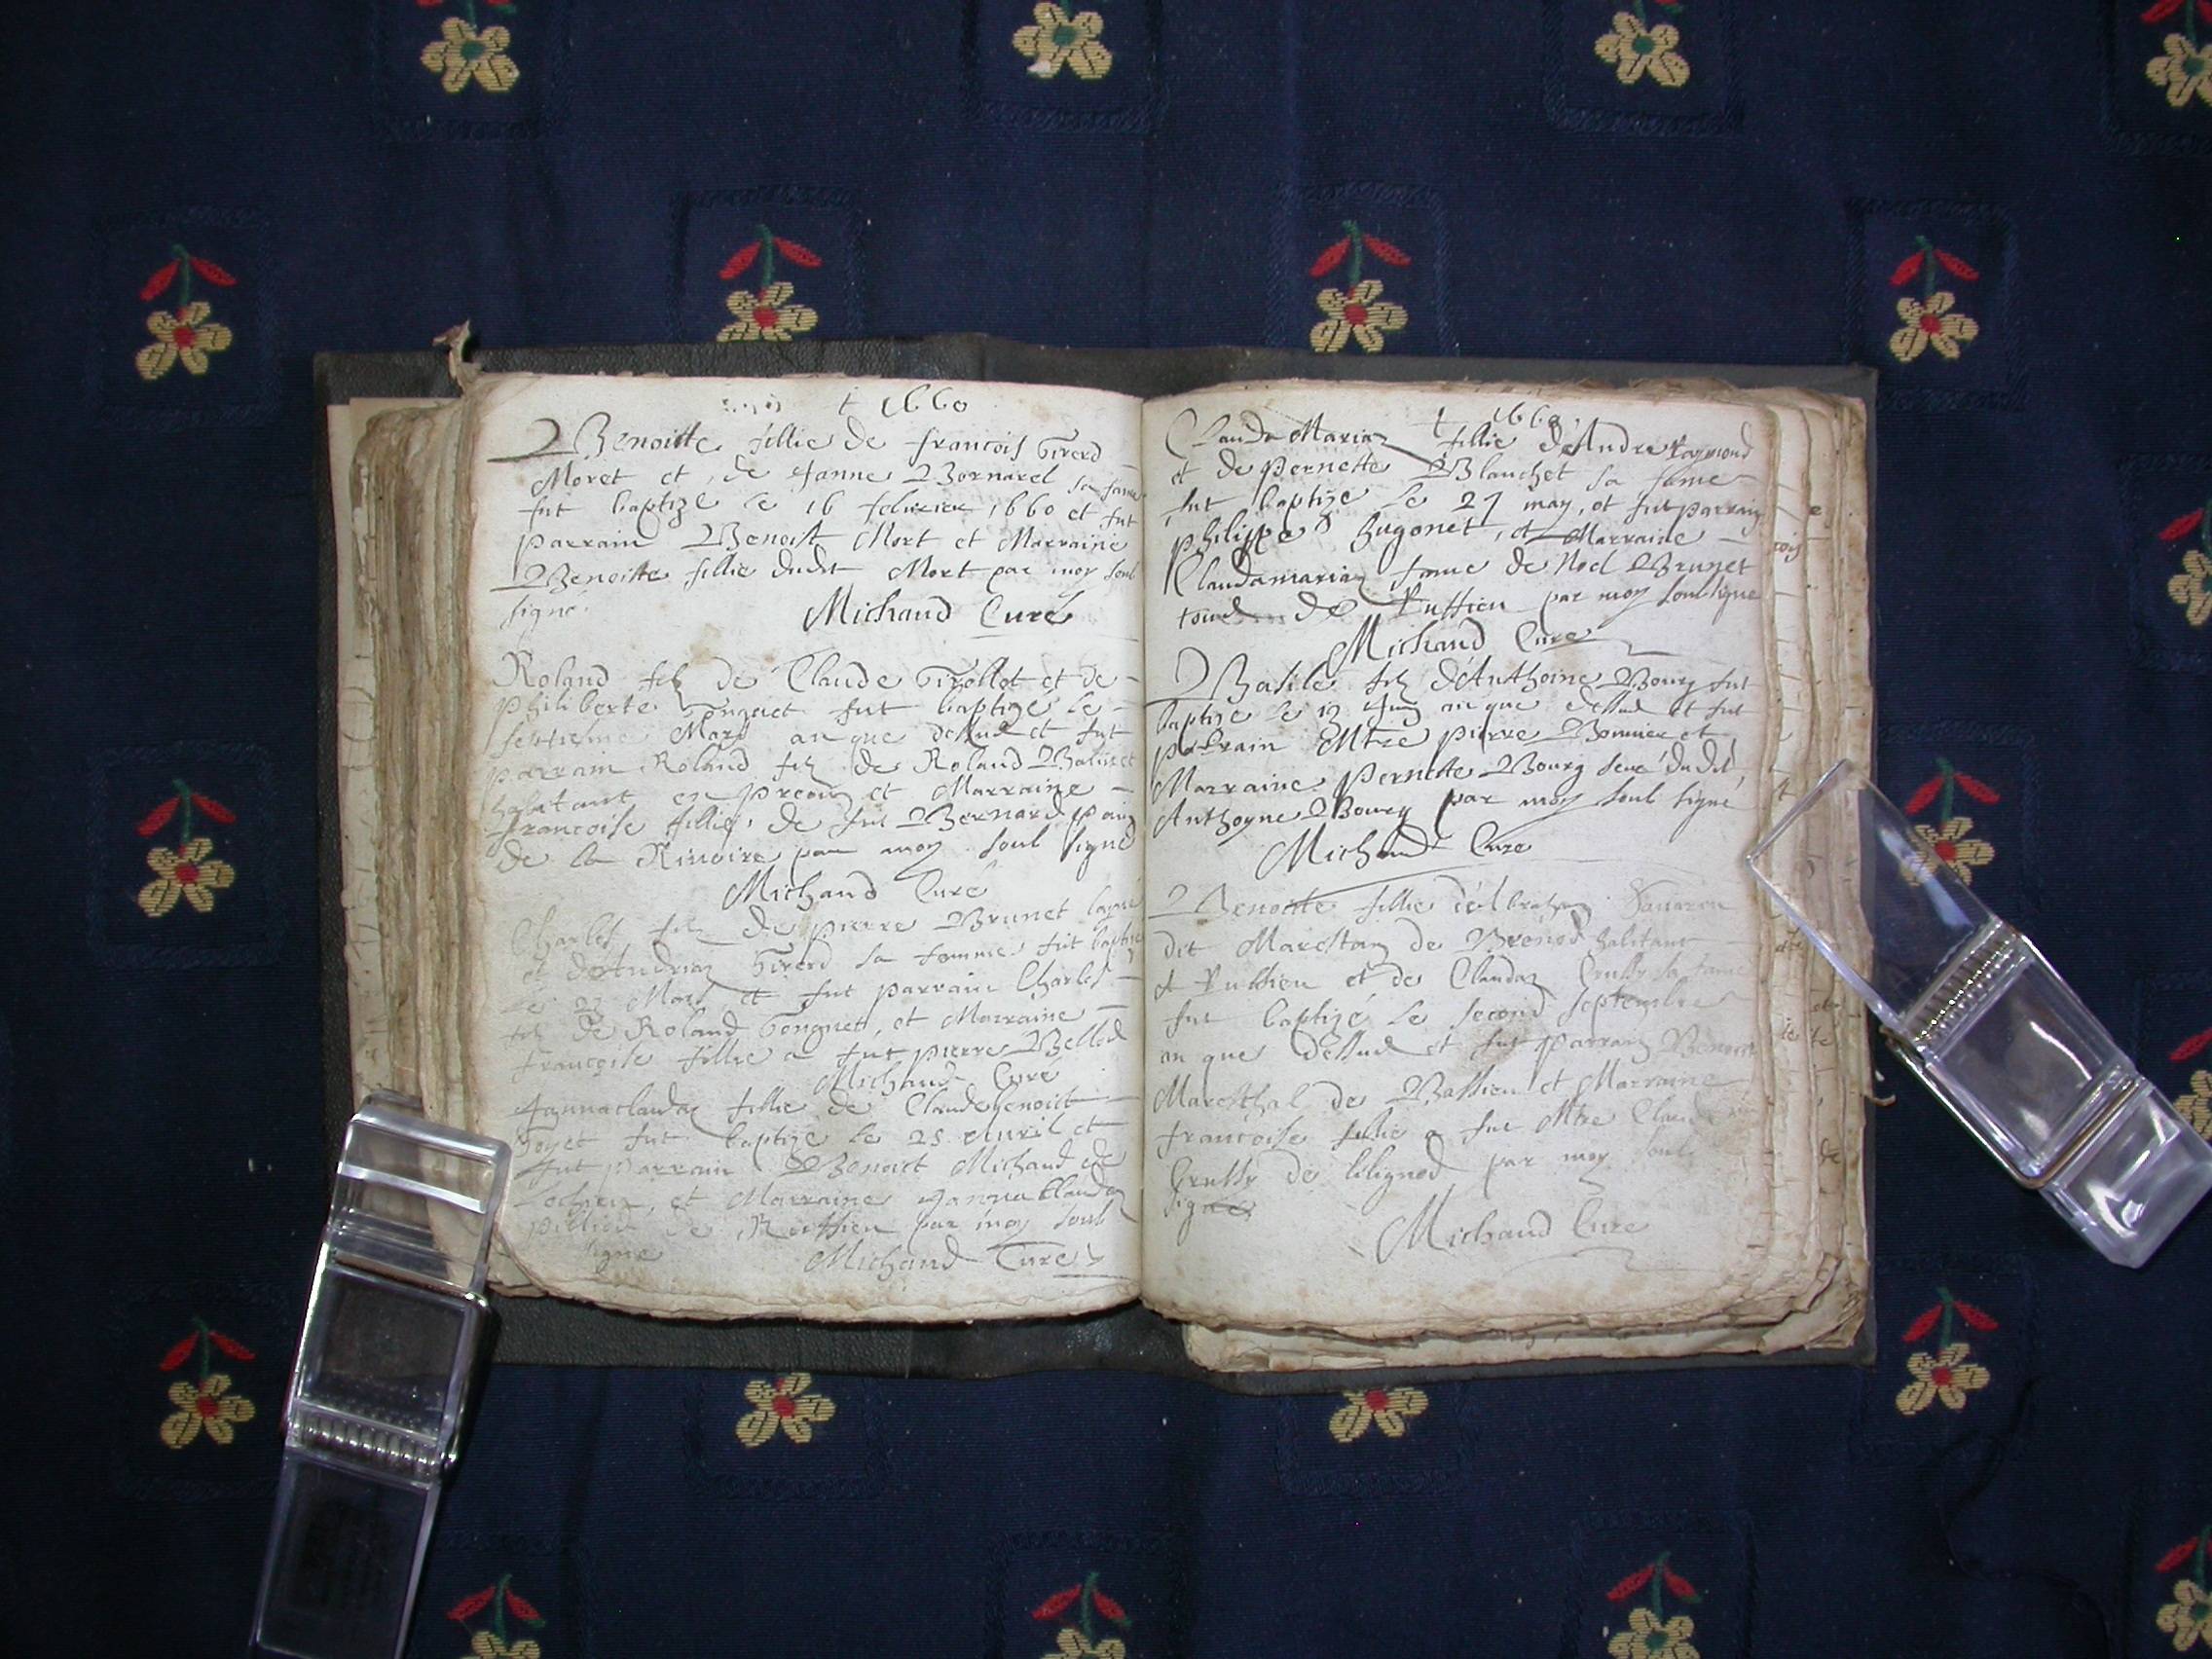 1660
Benoitte fillie de francois Girerd
Moret et de Janne Bornarel sa fame
fut baptize le 16 febvrier 1660 et fut
parrain Benoist Mort et Marraine
Benoitte fillie dudit Mort par moy soub
signe.
Michaud Curé
Roland filz de Claude Girollet et de
Philiberte Gonguet fut baptize le
Mars an que dessus et fut
parrain Roland filz de Roland
habitant en et Marraine
francoise fillie de fut Bernard
de la Rivoire par moy soub signe
Michaud Curé
Charles filz de pierre Brunet
et d'Andrian Girerd sa femme fut baptize
le 23 Mars et fut parrain Charles
filz de Roland Gonguet, et Marraine
francoise fillie a fut pierre Bellod
Michaud Cure
Jannaclauda fillie de Claude benoict
Goyet fut baptize le 25 Avril et
fut parrain Benoict Michaud de
Lochieu, et Marraine Janna Clauda
de Ruffieu par moy soub
signe Michaud Cure
1660
Clauda Maria fillie d'Andre Raymond
et de Pernette Blanchet sa fame
fut baptize le 27 may, et fut parrain
philippe Bugonet, et Marraine
Claudamaria fame de Noel Brunet
tous de Ruffieu par moy soubsigne
Michaud Cure
Basile filz d'Anthoine Bourg fut
baptize le 13 Jung an que dessus et fut
parrain Mtre pierre Bonnier et
Marraine Pernette Bourg seue dudit
Anthoyne Bourg par moy soub signé
Michaud Cure
Benoitte fillie d'Abraham
dit de Brenod habitant
A Ruffieu et de Clauda Crussy sa fame
fut baptizé le second septembre
an que dessus et fut parrain Benoict
Maresthal de et Marraine
francoise fillie a fut Mtre Claude
Crussy de lilignod par moy soub
signe
Michaud Cure